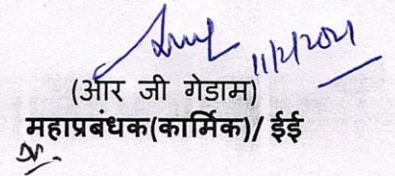 11/2/2021
(आर जी गेडाम)
महाप्रबंधक(कार्मिक)/ ईई